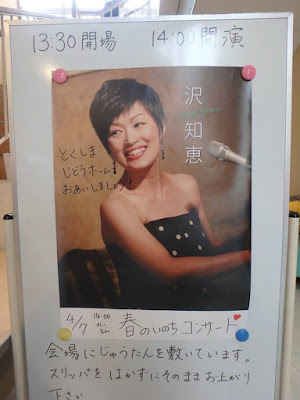 13:30開場　14:00開演
沢知恵
とくしま
じどうホームで
おあいしましょう
4/7 14:00 春のいのちコンサート
会場にじゅうたんを敷いています。
スリッパをはかずにそのままお上がり
下さい